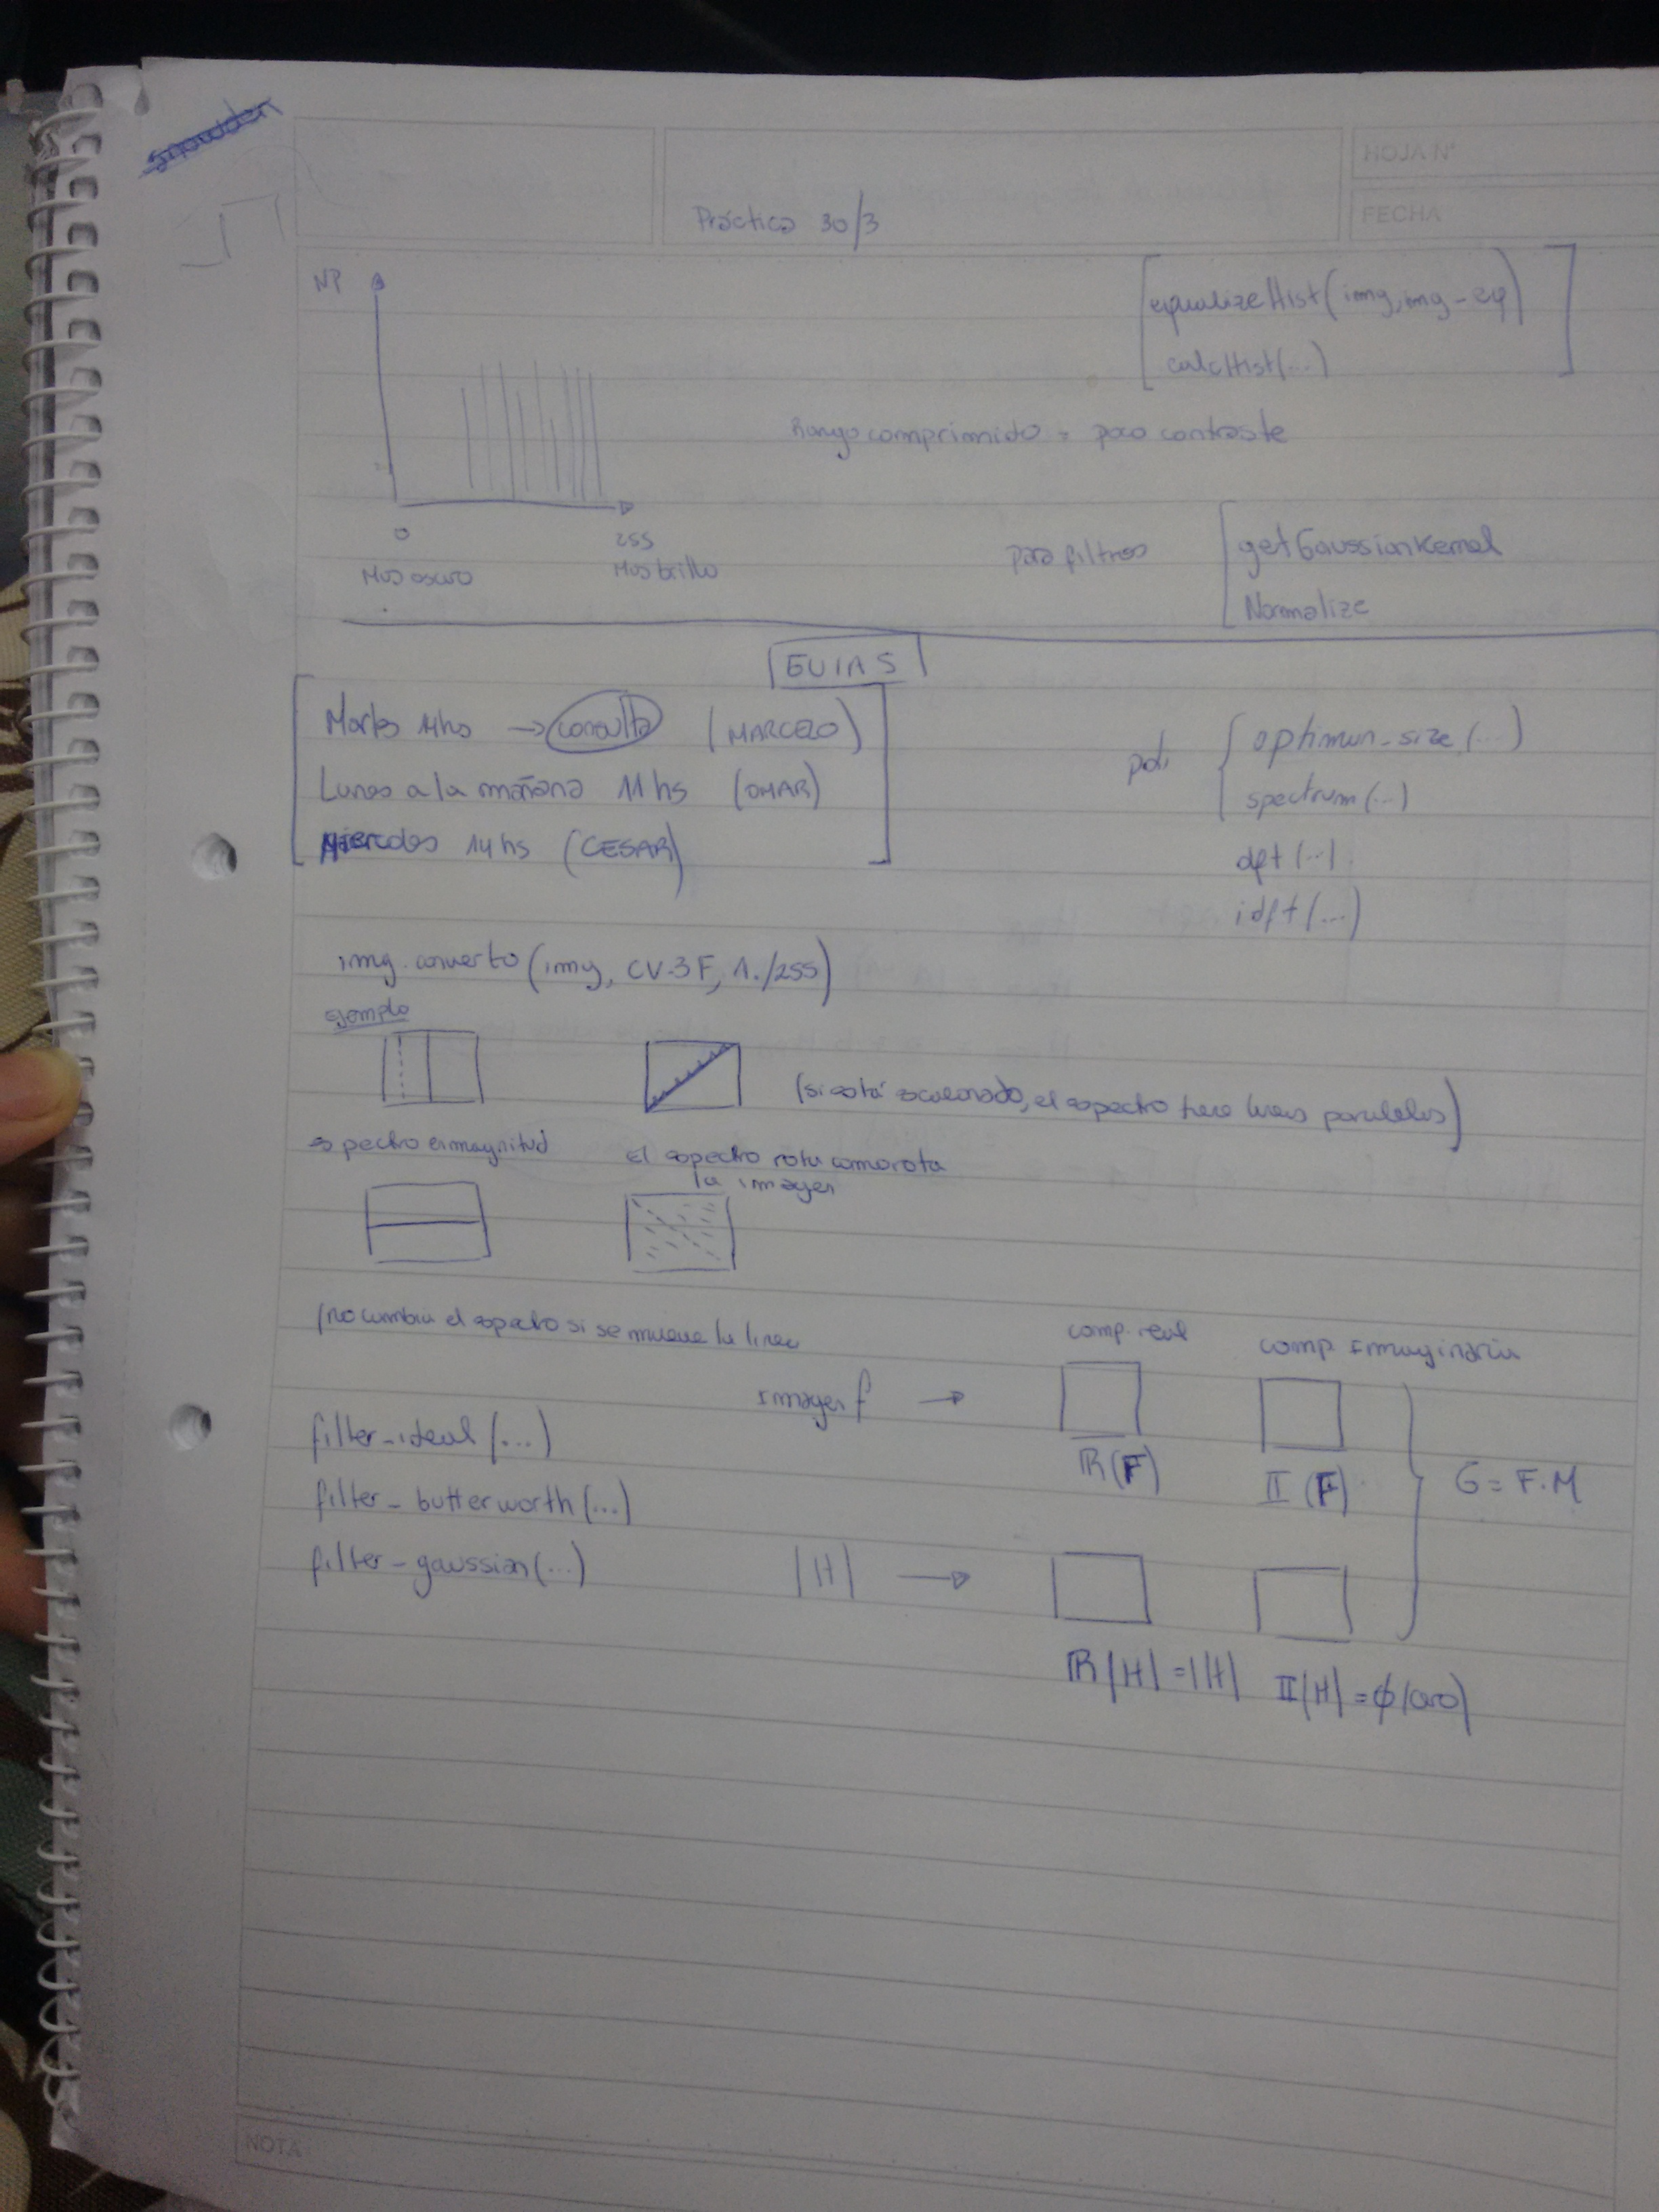 HOJA N°
FECHA
Práctica 30/3
NP
equalizeHist(img, img-eq)
calcHist(...)
Rango comprimido = poco contraste
0
255
Mas oscuro
Mas brillo
para filtros
getGaussianKernel
Normalize
GUIAS
Martes 14hs → consulta (MARCELO)
Lunes a la mañana 11hs (OMAR)
Miercoles 14hs (CESAR)
pdi
optimun-size(...)
spectrum(...)
dft(...)
idft(...)
img.converto(img, CV-3F, 1./255)
ejemplo
(si está escalonado, el espectro tiene lineas paralelas)
espectro en magnitud
el espectro rota como rota
la imagen
(no cambia el espectro si se mueve la linea
comp. real
comp Immaginaria
Imagen f →
filter-ideal(...)
ℝ(F)
II(F)
G = F.M
filter-butterworth(...)
filter-gaussian(...)
|H| →
ℝ|H| = |H|
II|H| = ϕ(cero)
NOTA